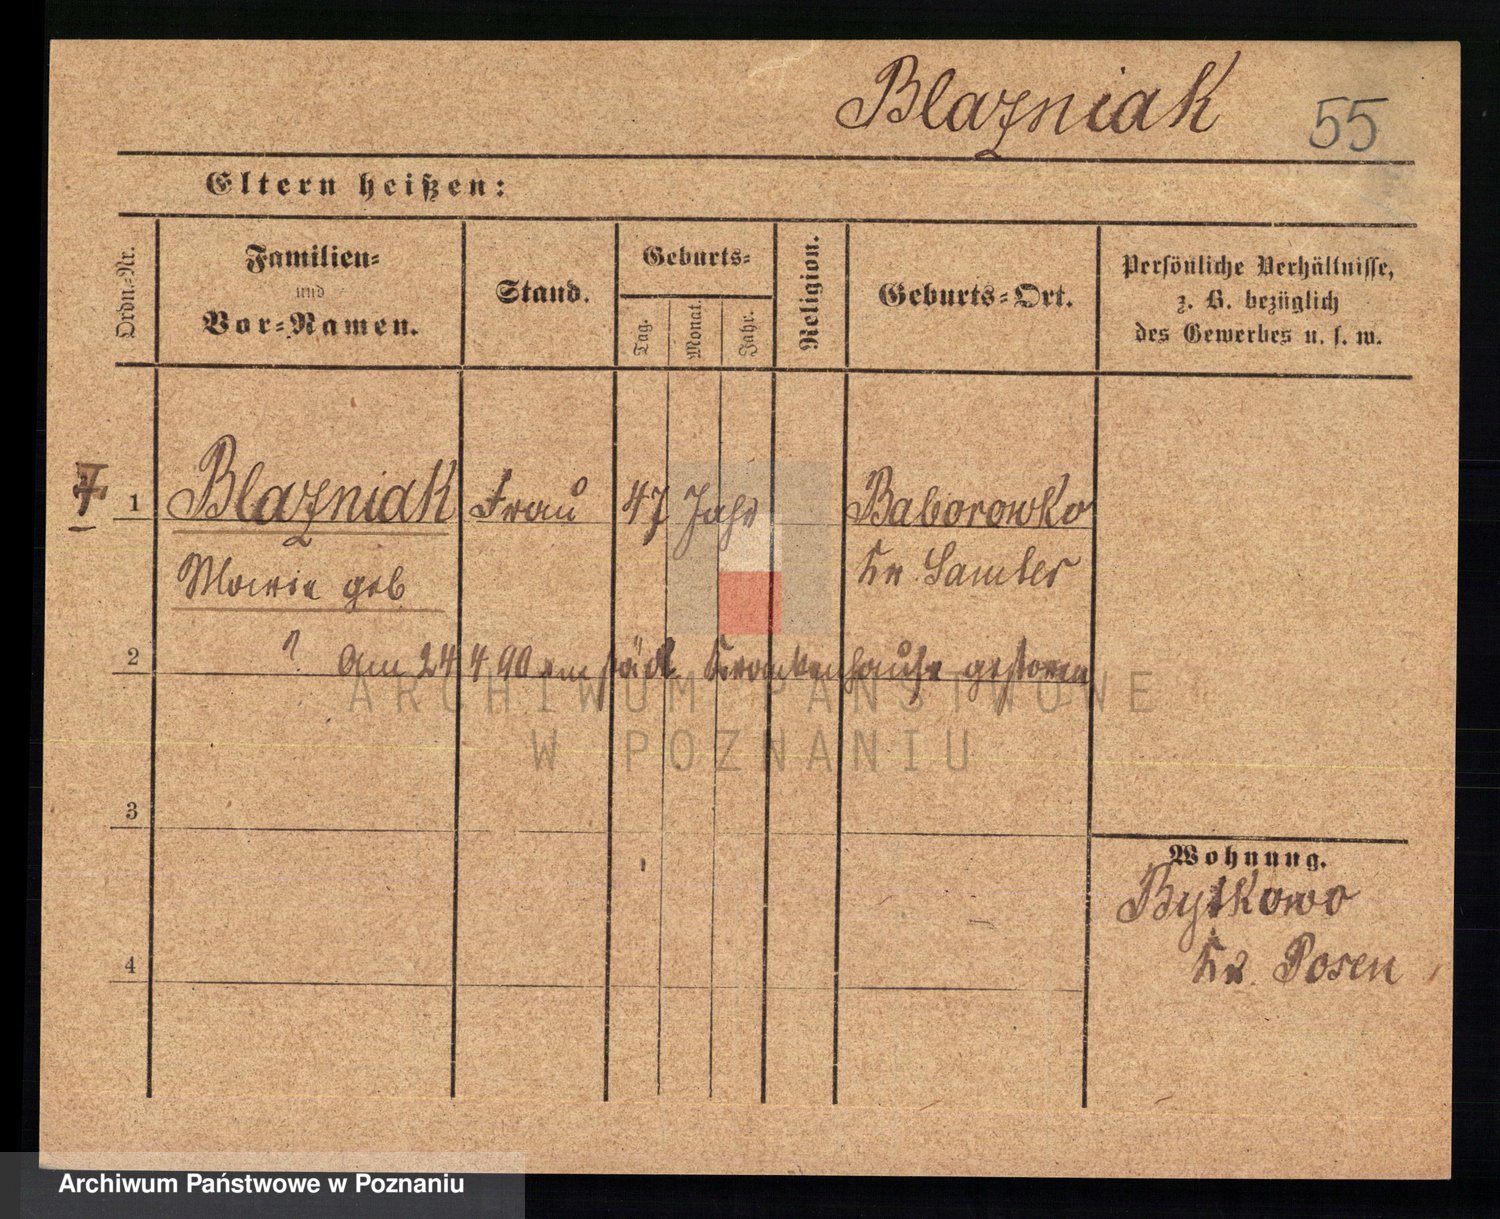 Blazniak 55
Eltern heißen:
Ordn.-Nr.
Familien-
und
Vor-Namen.
Stand.
Geburts-
Tag.
Monat.
Jahr.
Religion.
Geburts-Ort.
Persönliche Verhältnisse,
z. B. bezüglich
des Gewerbes u. s. w.
1 Blazniak Frau 47 Jahr Baborowko
Marie geb Kr. Samter
2 ? Am 24 4 90 im städt. Krankenhause gestorben
3
4
Wohnung.
Bytkowo
Kr. Posen
ARCHIWUM PAŃSTWOWE
W POZNANIU
Archiwum Państwowe w Poznaniu